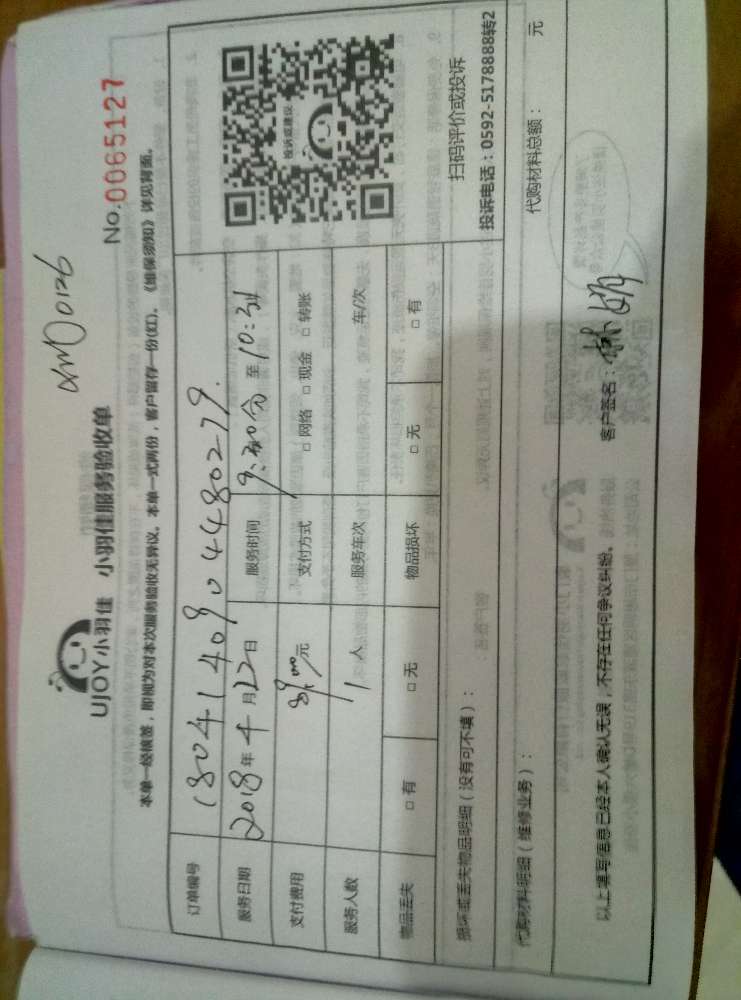 XMD0126
No.0065127
UJOY小羽佳 小羽佳服务验收单
本单一经核签，即视为对本次服务验收无异议。本单一式两份，客户留存一份(红)。《维保须知》详见背面。
订单编号 180414090448027 9
服务日期 2018年4月22日 服务时间 9:30分 至 10:31
支付费用 元 支付方式 □ 网络 □ 现金 □ 转账
服务人数 1人 服务车次 车/次
物品丢失 □ 有 □ 无 物品损坏 □ 无 □ 有
投诉或建议
扫码评价或投诉
投诉电话：0592-5178888转2
损坏或丢失物品明细（没有可不填）：
代购材料明细（维修业务）： 代购材料总额： 元
以上填写信息已经本人确认无误，不存在任何争议纠纷。 客户签名：林娟